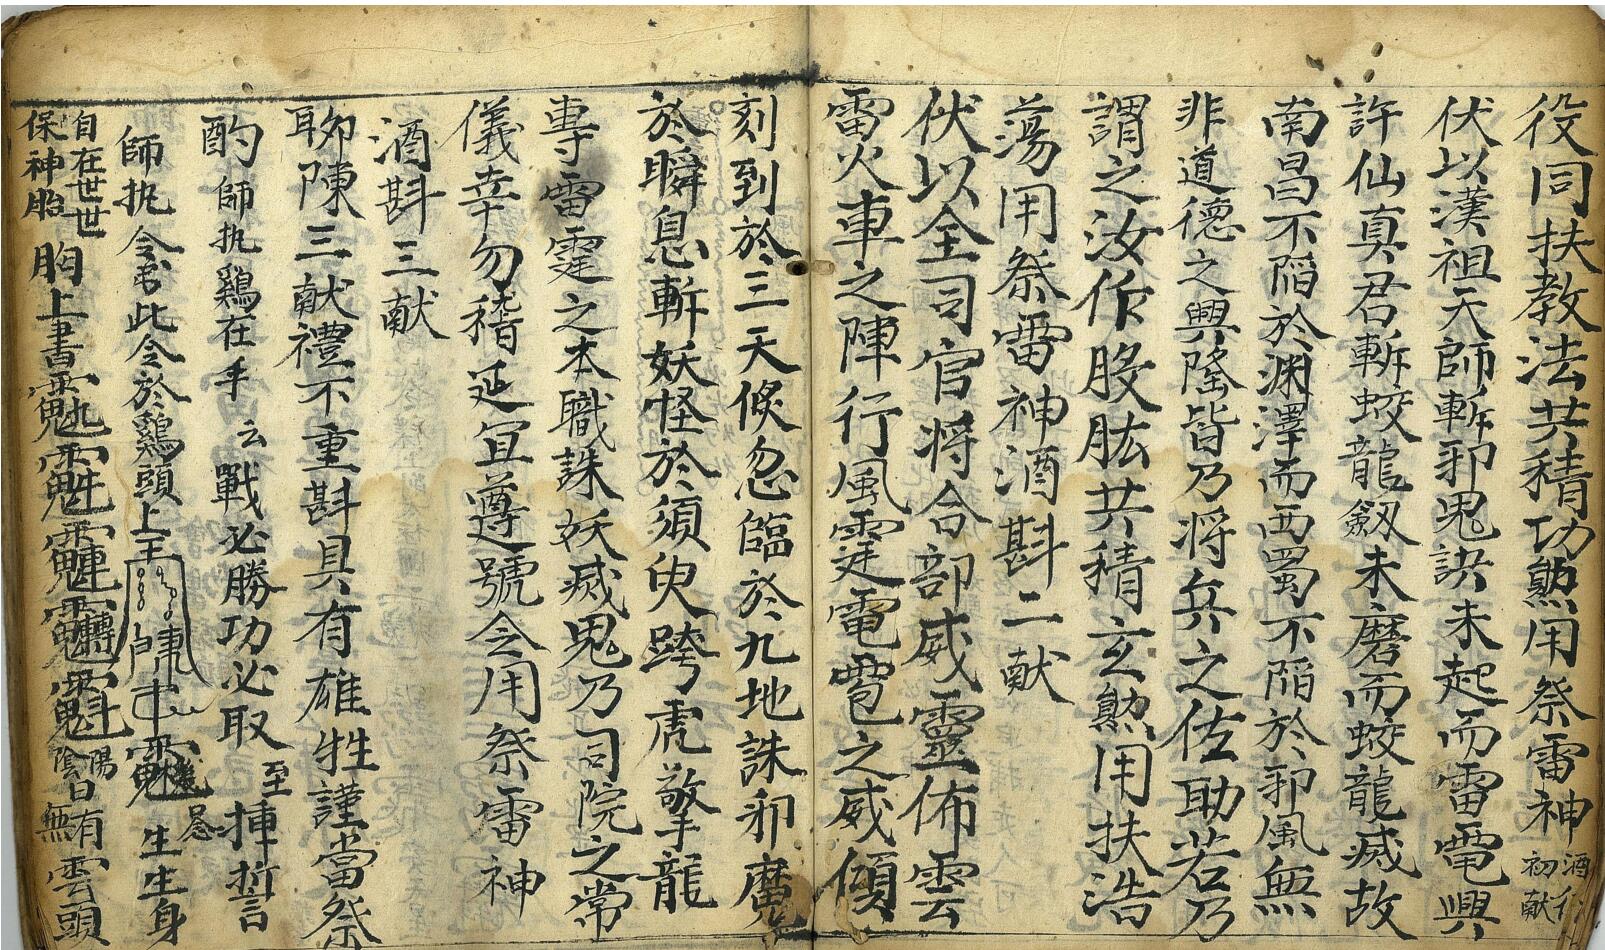 役同扶教法共積功勲用祭雷神 酒行初献
伏以漢祖天師斬邪鬼訣未起而雷電興
許仙真君斬蛟龍劔未磨而蛟龍滅故
南昌不陷於渊澤而西蜀不陷於邪風無
非道德之興隆皆乃将兵之佐助若乃
謂之汝作股肱共積玄勲用扶浩
蕩用祭雷神酒斟二献
伏以全司官将合部威靈佈雲
雷火車之陣行風霆電雹之威傾
刻到於三天倐忽臨於九地誅邪魔
於瞬息斬妖怪於須臾跨虎擎龍
專雷霆之本職誅妖滅鬼乃司院之常
儀幸勿稽延宜遵號令用祭雷神
酒斟三献
聊陳三献禮不重斟具有雄牲謹當祭
酌 師执鷄在手 云 戰必勝功必取 至 揷誓
師执令 此令於鷄頭上 生生身
自在世世保神胎 胸上書 陰陽 日 有無 雲頭